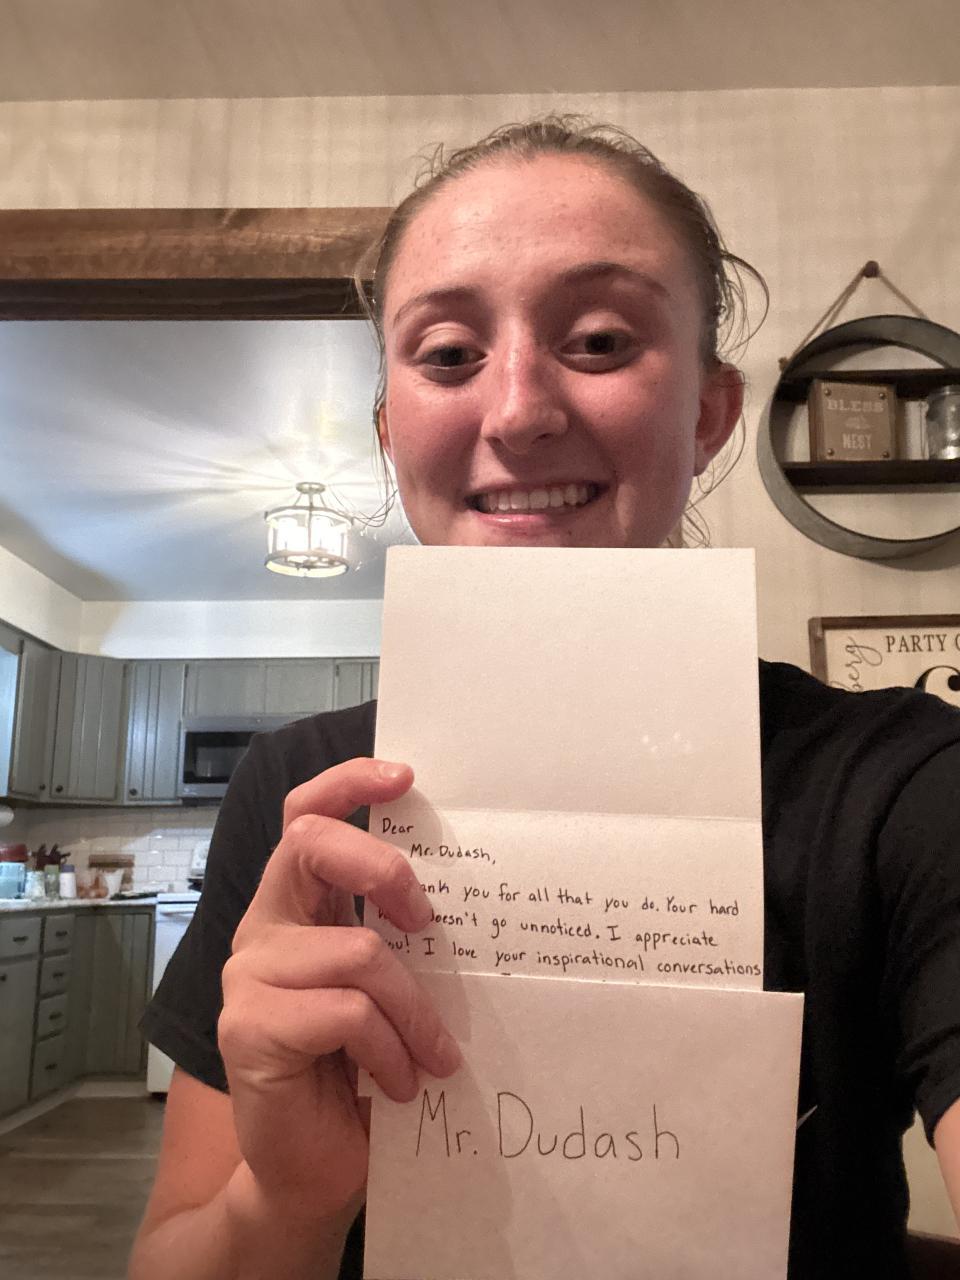 BLESS
NEST
PARTY
Dear
Mr. Dudash,
you for all that you do. Your hard
doesn't go unnoticed. I appreciate
I love your inspirational conversations
Mr. Dudash